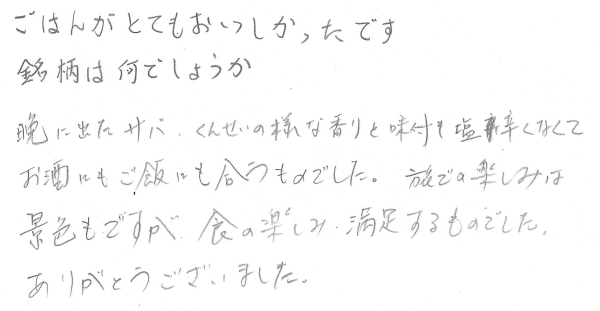 ごはんがとてもおいしかったです
銘柄は何でしょうか
晩に出たサバ、くんせいの様な香りと味付も塩辛くなくて
お酒にもご飯にも合うものでした。旅での楽しみは
景色もですが、食の楽しみ、満足するものでした。
ありがとうございました。